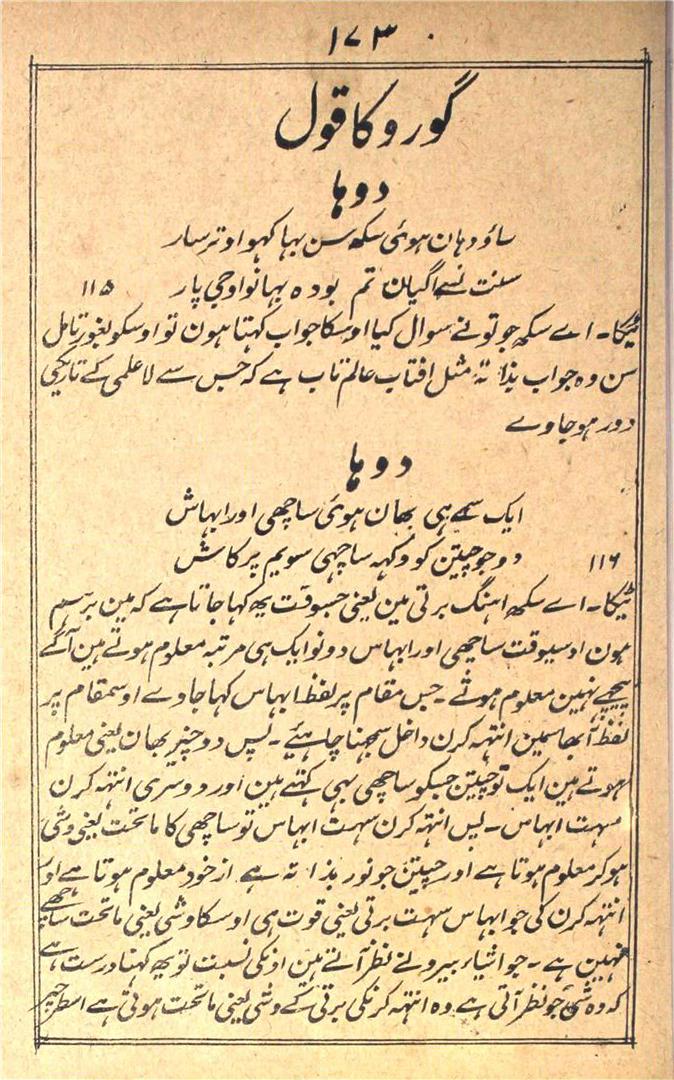 ۱۷۳
گورو کا قول
دوہا
ساؤدہان ہوئی سکھ سن بہا کہوا وترسار
سنت نسے اگیان تم بودہ بہانو اوجی پار ۱۱۵
ٹیکا۔ اے سکھ جو تونے سوال کیا اوسکا جواب کہتا ہون تو اوسکو بغور تامل
سن وہ جواب بذاتہ مثل افتاب عالم تاب ہے کہ جس سے لاعلمی کے تاریکی
دور ہوجاوے
دوہا
ایک سمے ہی بھان ہوئی ساچھی اور ابہاش
دوجو چیتن کو وکہہ ساچہی سویم پرکاش ۱۱۶
ٹیکا۔ اے سکھ اہنگ برتی مین یعنی جسوقت یھ کہا جاتا ہے کہ مین برہم
ہون اوسیوقت ساچھی اور ابہاس دونو ایک ہی مرتبہ معلوم ہوتے ہین آگے
پیچھے نہین معلوم ہوتے۔ جس مقام پر لفظ ابہاس کہا جاوے اوسمقام پر
لفظ آبھاسمین انتہہ کرن داخل سمجہنا چاہئیے۔ پس دو چیز بھان یعنی معلوم
ہوتے ہین ایک تو چیتن جسکو ساچھی بہی کہتے ہین اور دوسری انتہہ کرن
سہت ابہاس۔ پس انتہہ کرن سہت ابہاس تو ساچھی کا ماتحت یعنی وشی
ہوکر معلوم ہوتا ہے اور چیتن جو نور بذاتہ ہے ازخود معلوم ہوتا ہے اور
انتہہ کرن کی جو ابہاس سہت برتی یعنی قوت ہی اوسکا وشی یعنی ماتحت ساچھے
نہین ہے۔ جو اشیاء بیرونے نظر آتے ہین اونکی نسبت تو یھ کہنا درست ہے
کہ وہ شئ جو نظر آتی ہے وہ انتہہ کرنکی برتی کے وشی یعنی ماتحت ہوتی ہے